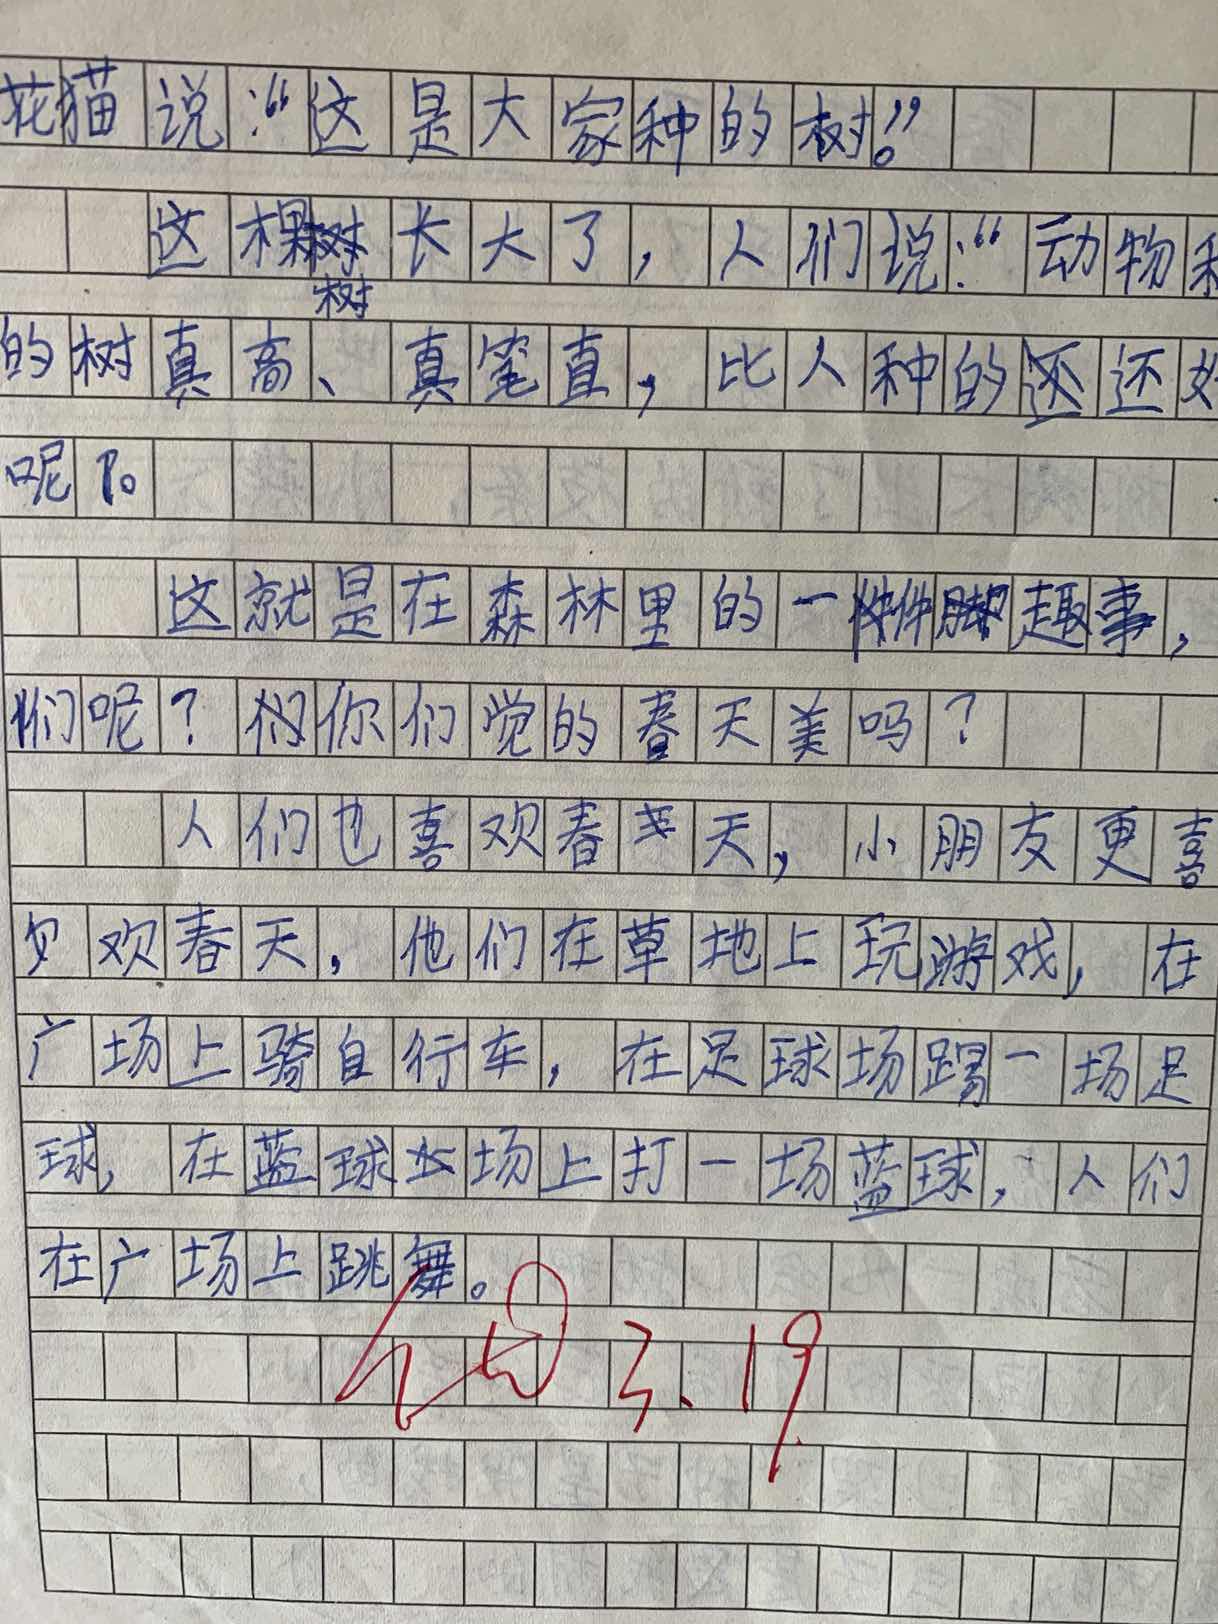 花猫说:“这是大家种的树。”
这棵树长大了,人们说:“动物种
树
的树真高、真笔直,比人种的还好
呢”。
这就是在森林里的一件趣事,
们呢?你们觉的春天美吗?
人们也喜欢春天,小朋友更喜
欢春天,他们在草地上玩游戏,在
广场上骑自行车,在足球场踢一场足
球,在蓝球场上打一场蓝球,人们
在广场上跳舞。
3.19